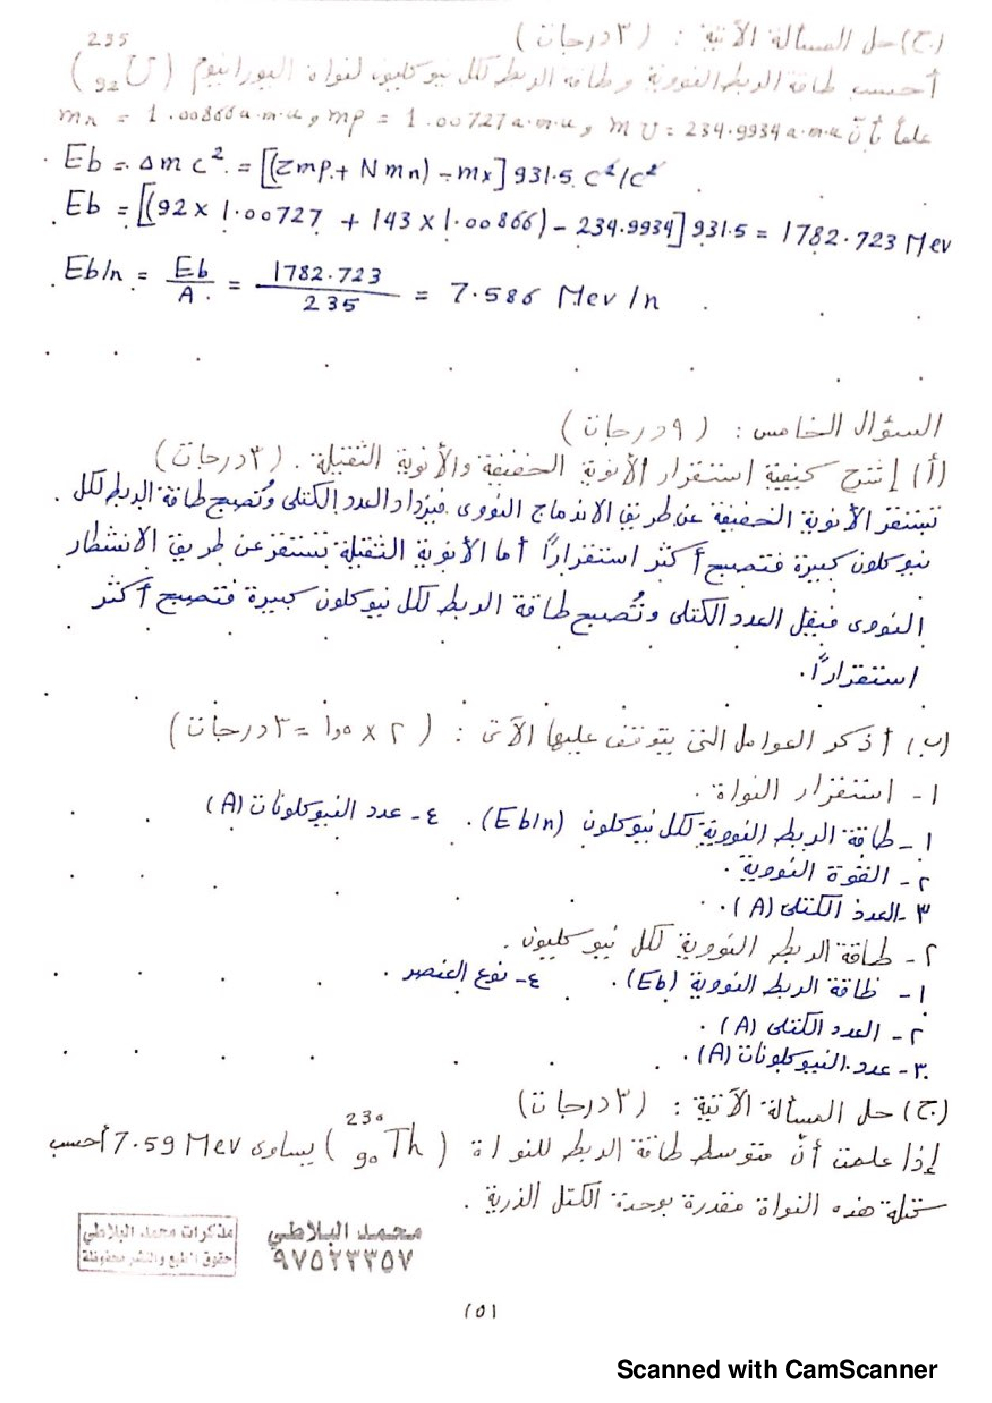 (ج) حل المسألة الآتية : (٣ درجات)
أحسب طاقة الربط النووية وطاقة الربط لكل نيوكليون لنواة اليورانيوم (²³⁵₉₂U)
علماً بأنّ mn = 1.00866 a.m.u , mp = 1.00727 a.m.u , mU = 234.9934 a.m.u
Eb = Δm c² = [(Zmp + Nmn) - mx] 931.5 c²/c²
Eb = [(92 x 1.00727 + 143 x 1.00866) - 234.9934] 931.5 = 1782.723 Mev
Eb/n = Eb/A = 1782.723/235 = 7.586 Mev/n
السؤال الخامس : (٩ درجات)
(أ) إشرح كيفية استقرار الأنوية الخفيفة والأنوية الثقيلة . (٣ درجات)
تستقر الأنوية الخفيفة عن طريق الاندماج النووى فيزداد العدد الكتلى وتُصبح طاقة الربط لكل
نيوكلون كبيرة فتصبح أكثر استقراراً أما الأنوية الثقيلة تستقر عن طريق الانشطار
النووى فيقل العدد الكتلى وتُصبح طاقة الربط لكل نيوكلون كبيرة فتصبح أكثر
استقراراً.
(ب) أذكر العوامل التى يتوقف عليها الآتى : (٢ x ١٫٥ = ٣ درجات)
١- استقرار النواة .
١- طاقة الربط النووية لكل نيوكلون (Eb/n) . ٤- عدد النيوكلونات (A)
٢- القوة النووية .
٣- العدد الكتلى (A) .
٢- طاقة الربط النووية لكل نيوكليون .
١- طاقة الربط النووية (Eb) . ٤- نوع العنصر .
٢- العدد الكتلى (A) .
٣- عدد النيوكلونات (A) .
(ج) حل المسألة الآتية : (٣ درجات)
إذا علمت أنّ متوسط طاقة الربط للنواة (²³⁰₉₀Th) يساوى 7.59 Mev أحسب
كتلة هذه النواة مقدرة بوحدة الكتل الذرية .
محمد البلاطي
٩٧٥٢٣٣٥٧
مذكرات محمد البلاطي
حقوق الطبع والنشر محفوظة
(٥)
Scanned with CamScanner